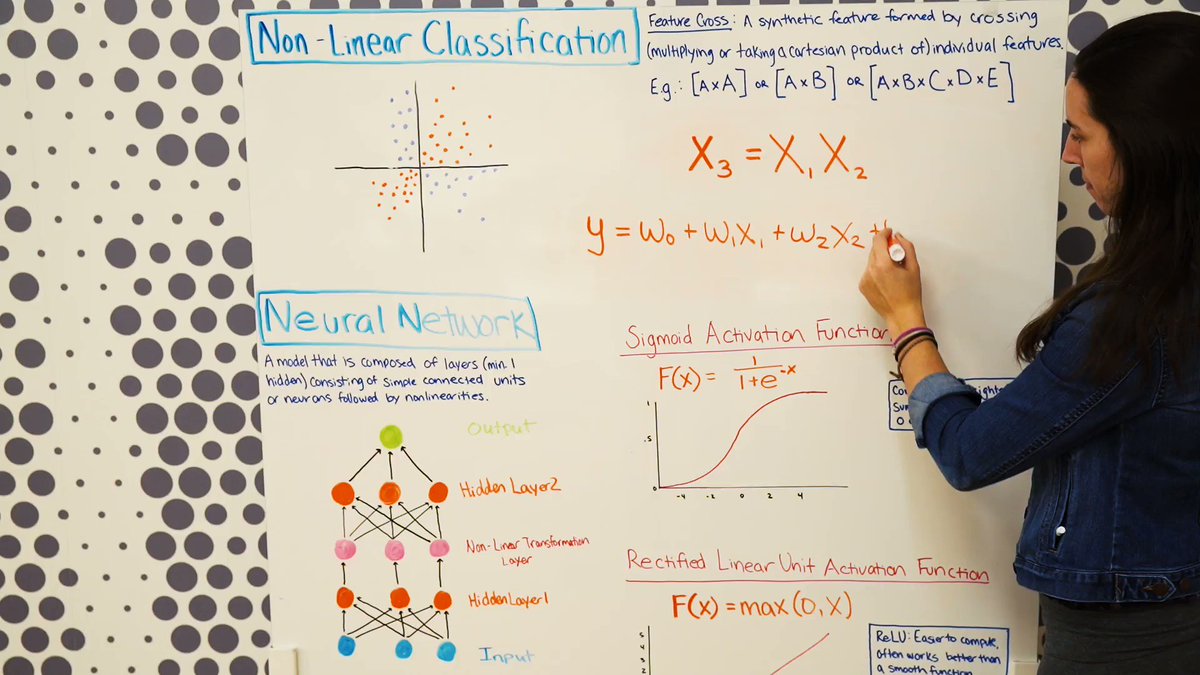 Non-Linear Classification
Feature Cross: A synthetic feature formed by crossing
(multiplying or taking a cartesian product of) individual features.
E.g.: [A×A] OR [A×B] OR [A×B×C×D×E]
X₃ = X₁X₂
y = W₀ + W₁X₁ + W₂X₂ +
Neural Network
A model that is composed of layers (min. 1
hidden) consisting of simple connected units
or neurons followed by nonlinearities.
Output
Hidden Layer 2
Non-Linear Transformation
Layer
Hidden Layer 1
Input
Sigmoid Activation Function
F(x) = 1/1+e^-x
1
.5
0
-4 -2 0 2 4
Rectified Linear Unit Activation Function
F(x) = max(0, X)
5
4
3
2
ReLU: Easier to compute,
often works better than
a smooth function